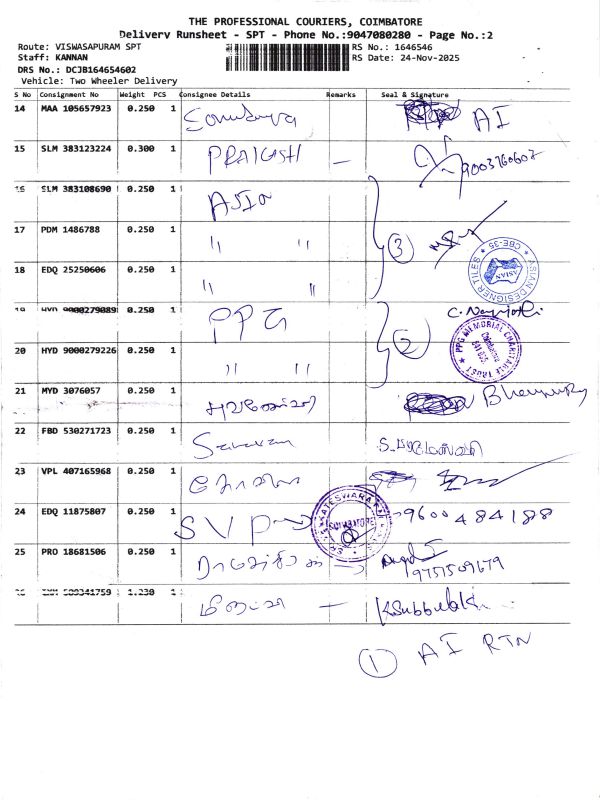 THE PROFESSIONAL COURIERS, COIMBATORE
Delivery Runsheet - SPT - Phone No.:9047080280 - Page No.:2
Route: VISWASAPURAM SPT RS No.: 1646546
Staff: KANNAN RS Date: 24-Nov-2025
DRS No.: DCJB164654602
Vehicle: Two Wheeler Delivery
S No Consignment No Weight PCS Consignee Details Remarks Seal & Signature
14 MAA 105657923 0.250 1 AI
15 SLM 383123224 0.300 1 PRAKASH — 9003760607
16 SLM 383108690 0.250 1 ASIA
17 PDM 1486788 0.250 1 " " 3
18 EDQ 25250606 0.250 1 " "
ASIAN DESIGNER SETTLES CBE-35
ASIAN
19 HYD 9000279089 0.250 1 PPG
20 HYD 9000279226 0.250 1 " " 2
PPG MEMORIAL CHARITABLE TRUST
21 MYD 3076057 0.250 1
22 FBD 530271723 0.250 1 Saravan
23 VPL 407165968 0.250 1
24 EDQ 11875807 0.250 1 SVP 9600484188
COIMBATORE
25 PRO 18681506 0.250 1 9757509679
26 1.230 1 — K.Subbulak
1 AI RTN